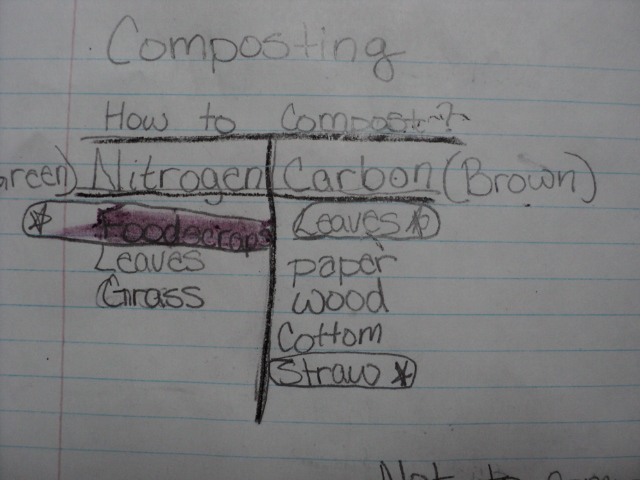 Composting
How to Compost?
Green) Nitrogen Carbon (Brown)
* Foodscraps Leaves *
Leaves paper
Grass wood
Cottom
Straw *
Not to